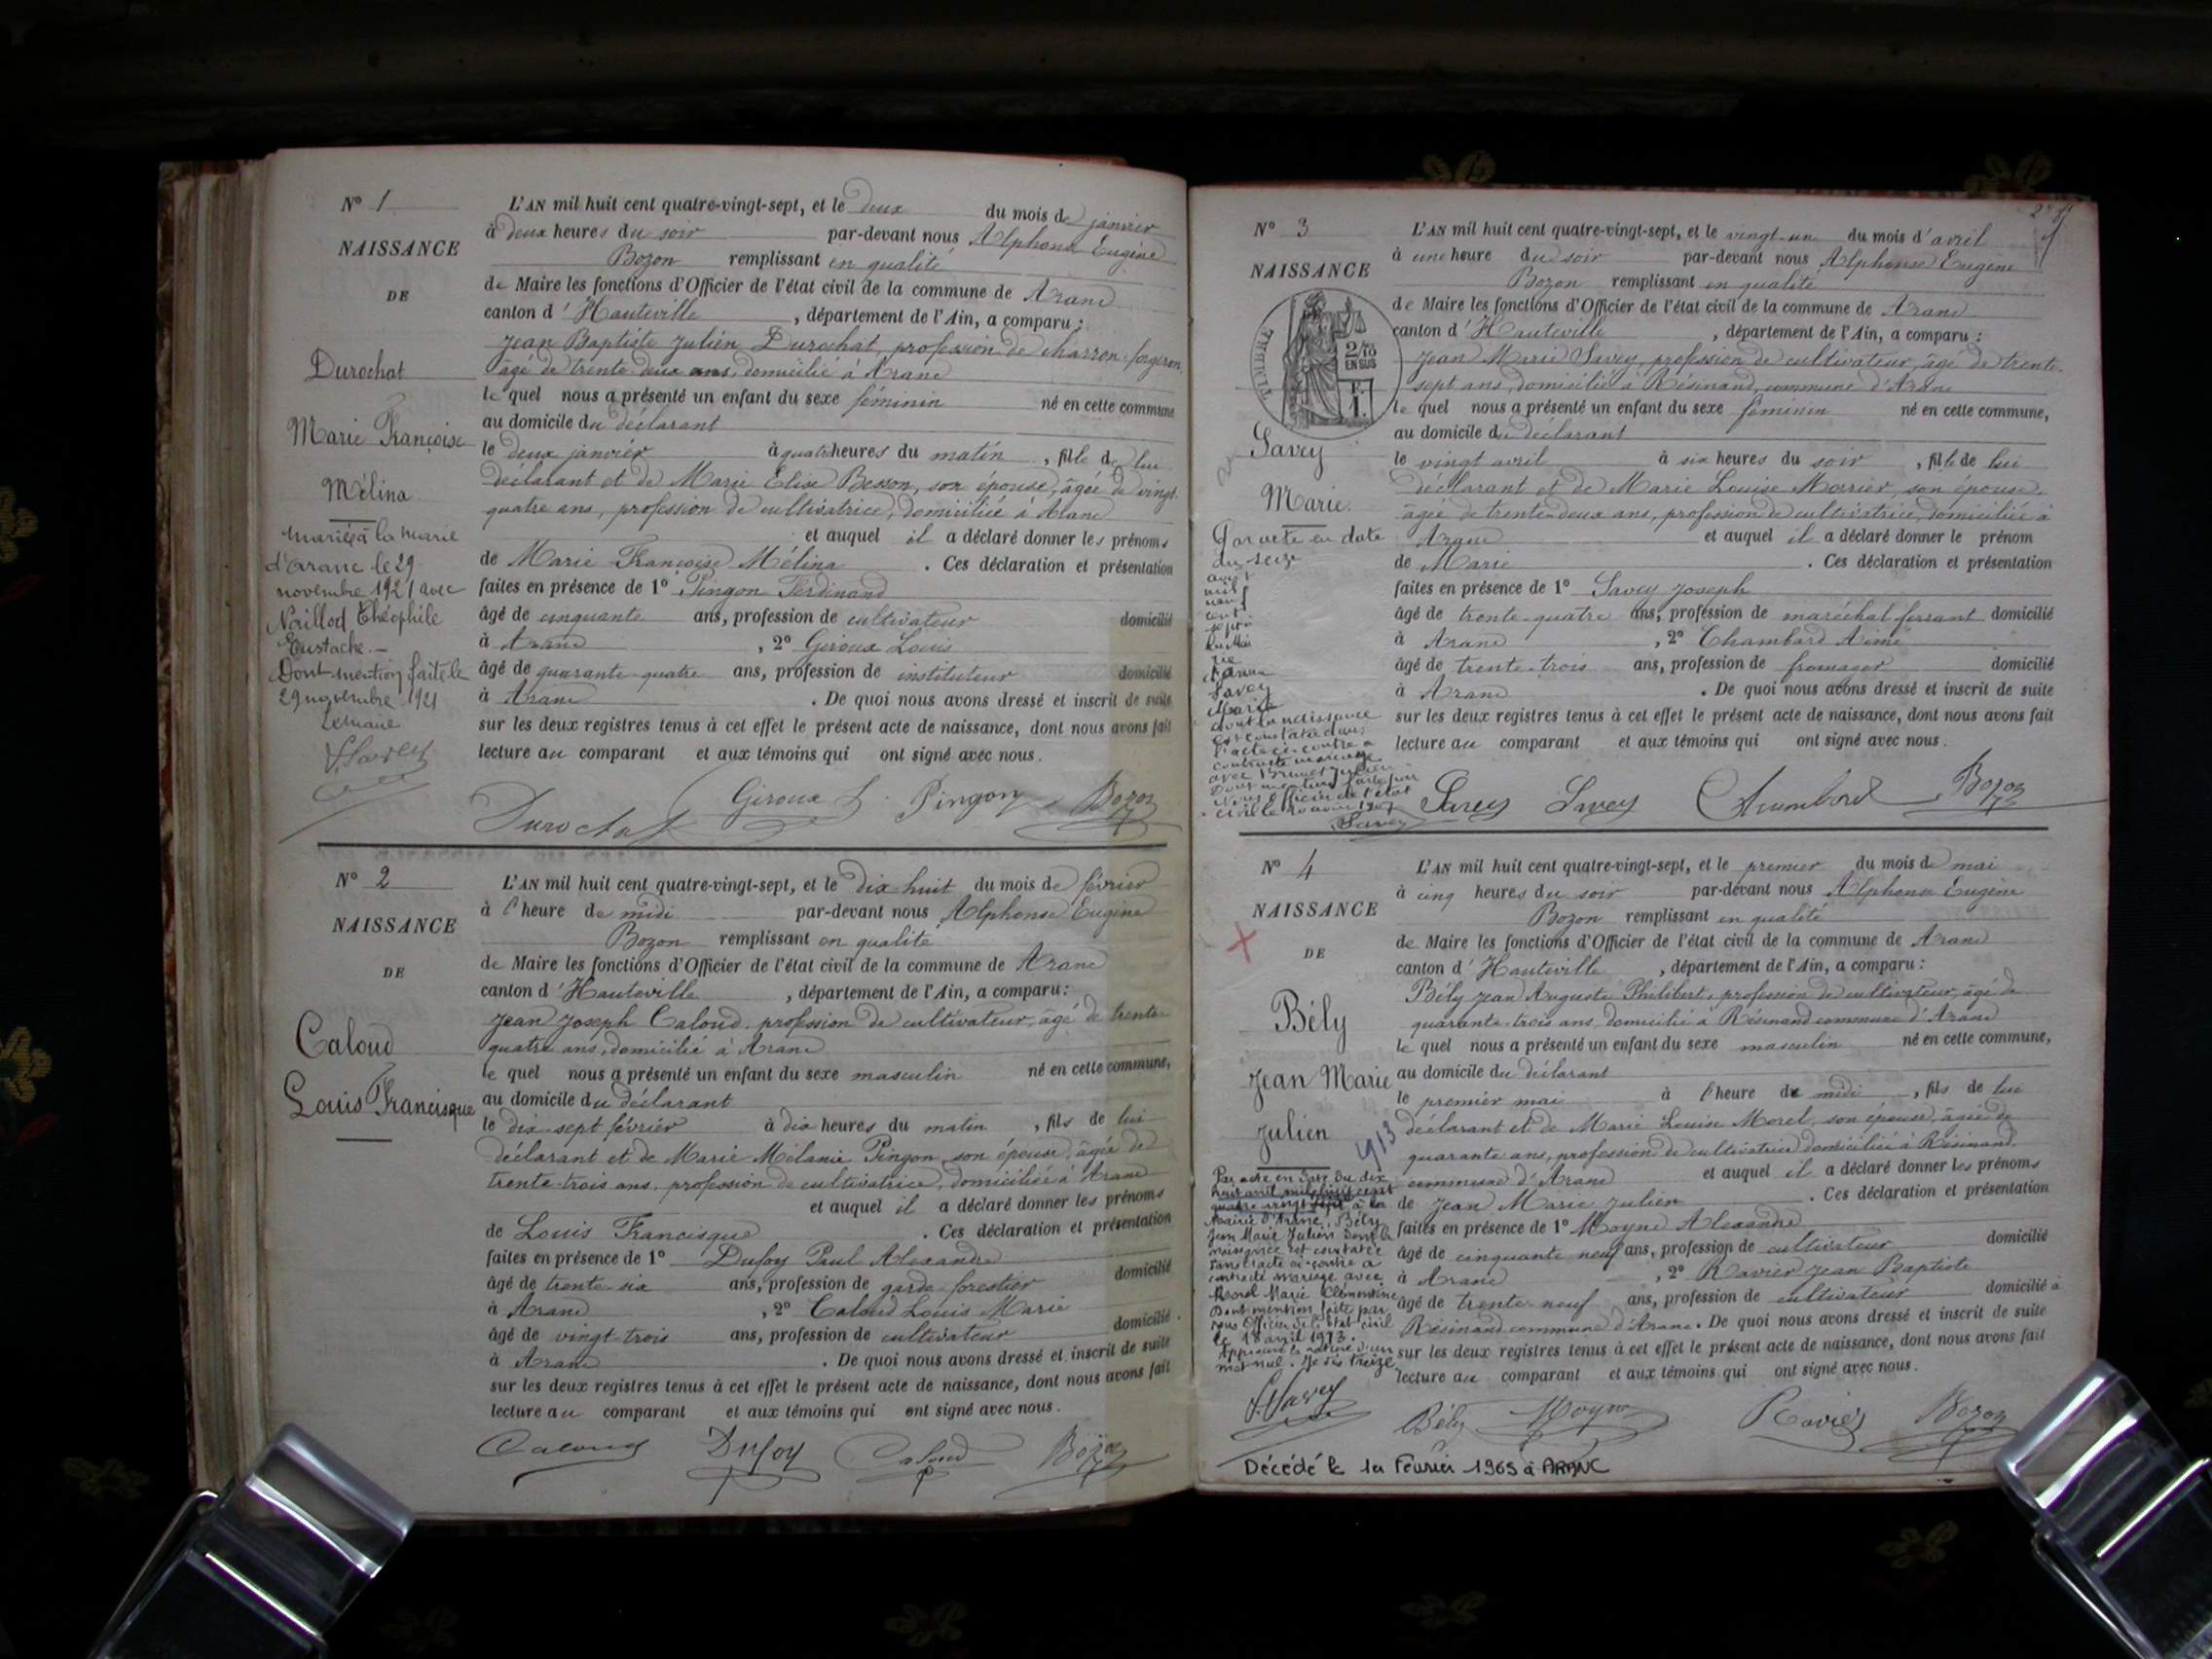 N° 1
NAISSANCE
DE
Durochat
Marie Françoise
Mélina
mariée à la mairie
d'Aranc le 29
novembre 1921 avec
Théophile
Eustache.
Dont mention faite le
29 novembre 1921
Le maire
Savey
L'AN mil huit cent quatre-vingt-sept, et le deux du mois de janvier
à deux heures du soir par-devant nous Alphonse Eugène
Bozon remplissant en qualité
de Maire les fonctions d'Officier de l'état civil de la commune de Aranc
canton d'Hauteville, département de l'Ain, a comparu :
Jean Baptiste Julien Durochat, profession de charron-forgeron,
âgé de trente deux ans, domicilié à Aranc
lequel nous a présenté un enfant du sexe féminin né en cette commune
au domicile du déclarant
le deux janvier à quatre heures du matin, fille de lui
déclarant et de Marie Elise Besson, son épouse, âgée de vingt-
quatre ans, profession de cultivatrice, domiciliée à Aranc
et auquel il a déclaré donner les prénoms
de Marie Françoise Mélina. Ces déclaration et présentation
faites en présence de 1° Pingon Ferdinand
âgé de cinquante ans, profession de cultivateur domicilié
à Aranc, 2° Giroux Louis
âgé de quarante-quatre ans, profession de instituteur domicilié
à Aranc. De quoi nous avons dressé et inscrit de suite
sur les deux registres tenus à cet effet le présent acte de naissance, dont nous avons fait
lecture au comparant et aux témoins qui ont signé avec nous.
Durochat Giroux L. Pingon Bozon
N° 2
NAISSANCE
DE
Caloud
Louis Francisque
L'AN mil huit cent quatre-vingt-sept, et le dix huit du mois de février
à l'heure de midi par-devant nous Alphonse Eugène
Bozon remplissant en qualité
de Maire les fonctions d'Officier de l'état civil de la commune de Aranc
canton d'Hauteville, département de l'Ain, a comparu :
Jean Joseph Caloud, profession de cultivateur, âgé de trente-
quatre ans, domicilié à Aranc
lequel nous a présenté un enfant du sexe masculin né en cette commune,
au domicile du déclarant
le dix-sept février à dix heures du matin, fils de lui
déclarant et de Marie Mélanie Pingon, son épouse, âgée de
trente-trois ans, profession de cultivatrice, domiciliée à Aranc
et auquel il a déclaré donner les prénoms
de Louis Francisque. Ces déclaration et présentation
faites en présence de 1° Dufoy Paul Alexandre
âgé de trente-six ans, profession de garde forestier domicilié
à Aranc, 2° Caloud Louis Marie
âgé de vingt-trois ans, profession de cultivateur domicilié
à Aranc. De quoi nous avons dressé et inscrit de suite
sur les deux registres tenus à cet effet le présent acte de naissance, dont nous avons fait
lecture au comparant et aux témoins qui ont signé avec nous.
Caloud Dufoy Caloud Bozon
N° 3
NAISSANCE
TIMBRE
2/10
EN SUS
Savey
Marie.
Par acte en date
du seize
avril
mil
neuf
cent
sept
Aranc
Savey
Marie
dont la naissance
est constatée dans
l'acte ci-contre a
contracté mariage
avec
Dont mention faite par
Nous Officier de l'état
civil le
Savey
L'AN mil huit cent quatre-vingt-sept, et le vingt-un du mois d'avril
à une heure du soir par-devant nous Alphonse Eugène
Bozon remplissant en qualité
de Maire les fonctions d'Officier de l'état civil de la commune de Aranc
canton d'Hauteville, département de l'Ain, a comparu :
Jean Marie Savey, profession de cultivateur, âgé de trente-
sept ans, domicilié à Résinand, commune d'Aranc
lequel nous a présenté un enfant du sexe féminin né en cette commune,
au domicile du déclarant
le vingt avril à six heures du soir, fille de lui
déclarant et de Marie Louise Morrier, son épouse,
âgée de trente-deux ans, profession de cultivatrice, domiciliée à
Aranc et auquel il a déclaré donner le prénom
de Marie. Ces déclaration et présentation
faites en présence de 1° Savey Joseph
âgé de trente-quatre ans, profession de maréchal ferrant domicilié
à Aranc, 2° Chambard Aimé
âgé de trente-trois ans, profession de fromager domicilié
à Aranc. De quoi nous avons dressé et inscrit de suite
sur les deux registres tenus à cet effet le présent acte de naissance, dont nous avons fait
lecture au comparant et aux témoins qui ont signé avec nous.
Savey Savey Bozon
N° 4
NAISSANCE
DE
Bély
Jean Marie
Julien
1913
Par acte en date du dix
huit avril mil huit cent
quatre vingt sept à la
Mairie d'Aranc, Bély
Jean Marie Julien dont la
naissance est constatée
dans l'acte ci-contre a
contracté mariage avec
Morel Marie Clémentine
Dont mention faite par
nous Officier de l'état civil
le 18 avril 1913.
mot nul.
Savey
L'AN mil huit cent quatre-vingt-sept, et le premier du mois de mai
à cinq heures du soir par-devant nous Alphonse Eugène
Bozon remplissant en qualité
de Maire les fonctions d'Officier de l'état civil de la commune de Aranc
canton d'Hauteville, département de l'Ain, a comparu :
Bély Jean Auguste Philibert, profession de cultivateur, âgé de
quarante-trois ans, domicilié à Résinand commune d'Aranc
lequel nous a présenté un enfant du sexe masculin né en cette commune,
au domicile du déclarant
le premier mai à l'heure de midi, fils de lui
déclarant et de Marie Louise Morel, son épouse, âgée de
quarante ans, profession de cultivatrice domiciliée à Résinand
commune d'Aranc et auquel il a déclaré donner les prénoms
de Jean Marie Julien. Ces déclaration et présentation
faites en présence de 1° Moyne Alexandre
âgé de cinquante neuf ans, profession de cultivateur domicilié
à Aranc, 2° Ravier Jean Baptiste
âgé de trente-neuf ans, profession de cultivateur domicilié à
Résinand commune d'Aranc. De quoi nous avons dressé et inscrit de suite
sur les deux registres tenus à cet effet le présent acte de naissance, dont nous avons fait
lecture au comparant et aux témoins qui ont signé avec nous.
Bély Moyne Ravier Bozon
Décédé le 1er Février 1965 à ARANC